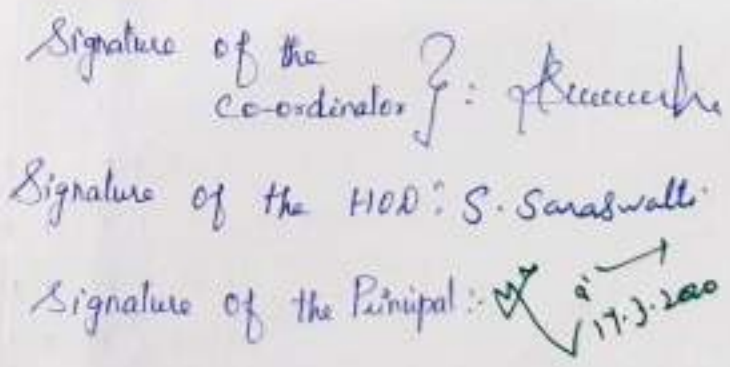 Signature of the
co-ordinator } :
Signature of the HOD : S. Saraswathi
Signature of the Principal :-